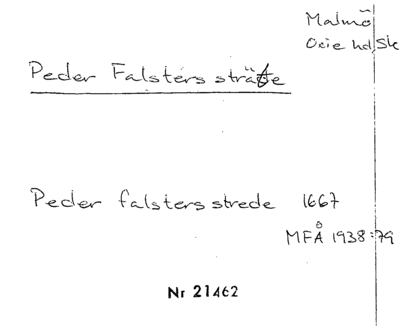 Malmö
Oxie hd, Sk
Peder Falsters stræte
Peder falsters strede 1667
MFÅ 1938:79
Nr 21462